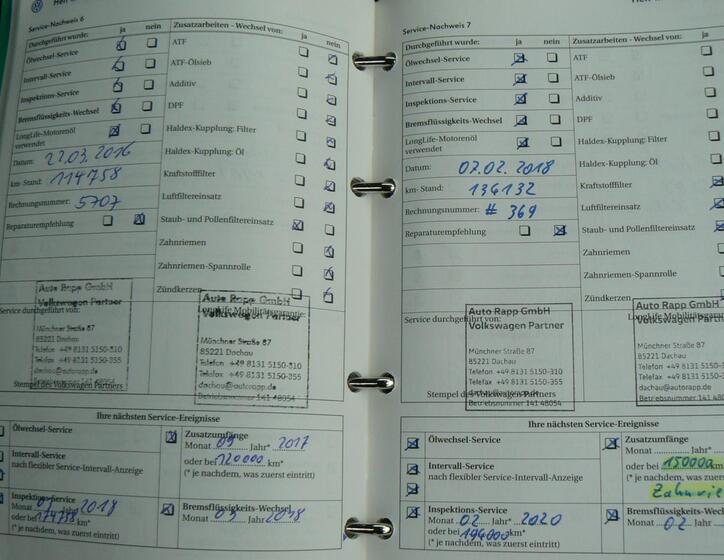 Service-Nachweis 6
Durchgeführt wurde: ja nein
Ölwechsel-Service
Intervall-Service
Inspektions-Service
Bremsflüssigkeits-Wechsel
LongLife-Motorenöl
verwendet
Datum: 22.03.2016
km-Stand: 114758
Rechnungsnummer: 5707
Reparaturempfehlung
Zusatzarbeiten - Wechsel von: ja nein
ATF
ATF-Ölsieb
Additiv
DPF
Haldex-Kupplung: Filter
Haldex-Kupplung: Öl
Kraftstofffilter
Luftfiltereinsatz
Staub- und Pollenfiltereinsatz
Zahnriemen
Zahnriemen-Spannrolle
Zündkerzen
Service durchgeführt von:
LongLife Mobilitätsgarantie:
Auto Rapp GmbH
Volkswagen Partner
Münchner Straße 87
85221 Dachau
Telefon +49 8131 5150-310
Telefax +49 8131 5150-355
Auto Rapp GmbH
Volkswagen Partner
Münchner Straße 87
85221 Dachau
Telefon +49 8131 5150-310
Telefax +49 8131 5150-355
dachau@autorapp.de
Betriebsnummer 141 48054
Stempel des Volkswagen Partners
Ihre nächsten Service-Ereignisse
Ölwechsel-Service
Intervall-Service
nach flexibler Service-Intervall-Anzeige
Inspektions-Service
Monat Jahr 2018
oder bei km*
(* je nachdem, was zuerst eintritt)
Zusatzumfänge
Monat 03 Jahr* 2017
oder bei 120000 km*
(* je nachdem, was zuerst eintritt)
Bremsflüssigkeits-Wechsel
Monat 03 Jahr 2018
Service-Nachweis 7
Durchgeführt wurde: ja nein
Ölwechsel-Service
Intervall-Service
Inspektions-Service
Bremsflüssigkeits-Wechsel
LongLife-Motorenöl
verwendet
Datum: 07.02.2018
km-Stand: 136132
Rechnungsnummer: # 369
Reparaturempfehlung
Zusatzarbeiten - Wechsel von: ja
ATF
ATF-Ölsieb
Additiv
DPF
Haldex-Kupplung: Filter
Haldex-Kupplung: Öl
Kraftstofffilter
Luftfiltereinsatz
Staub- und Pollenfiltereinsatz
Zahnriemen
Zahnriemen-Spannrolle
Zündkerzen
Service durchgeführt von:
LongLife Mobilitäts
Auto Rapp GmbH
Volkswagen Partner
Münchner Straße 87
85221 Dachau
Telefon +49 8131 5150-310
Telefax +49 8131 5150-355
dachau@autorapp.de
Betriebsnummer 141 48054
Auto Rapp GmbH
Volkswagen Partner
Münchner Straße 87
85221 Dachau
Telefon +49 8131 5150-31
Telefax +49 8131 5150-35
dachau@autorapp.de
Betriebsnummer 141 4805
Stempel des Volkswagen Partners
Ihre nächsten Service-Ereignisse
Ölwechsel-Service
Intervall-Service
nach flexibler Service-Intervall-Anzeige
Inspektions-Service
Monat 02 Jahr 2020
oder bei km*
(* je nachdem, was zuerst eintritt)
Zusatzumfänge
Monat Jahr
oder bei
(* je nachdem, was zu
Bremsflüssigkeits-We
Monat 02 Jahr